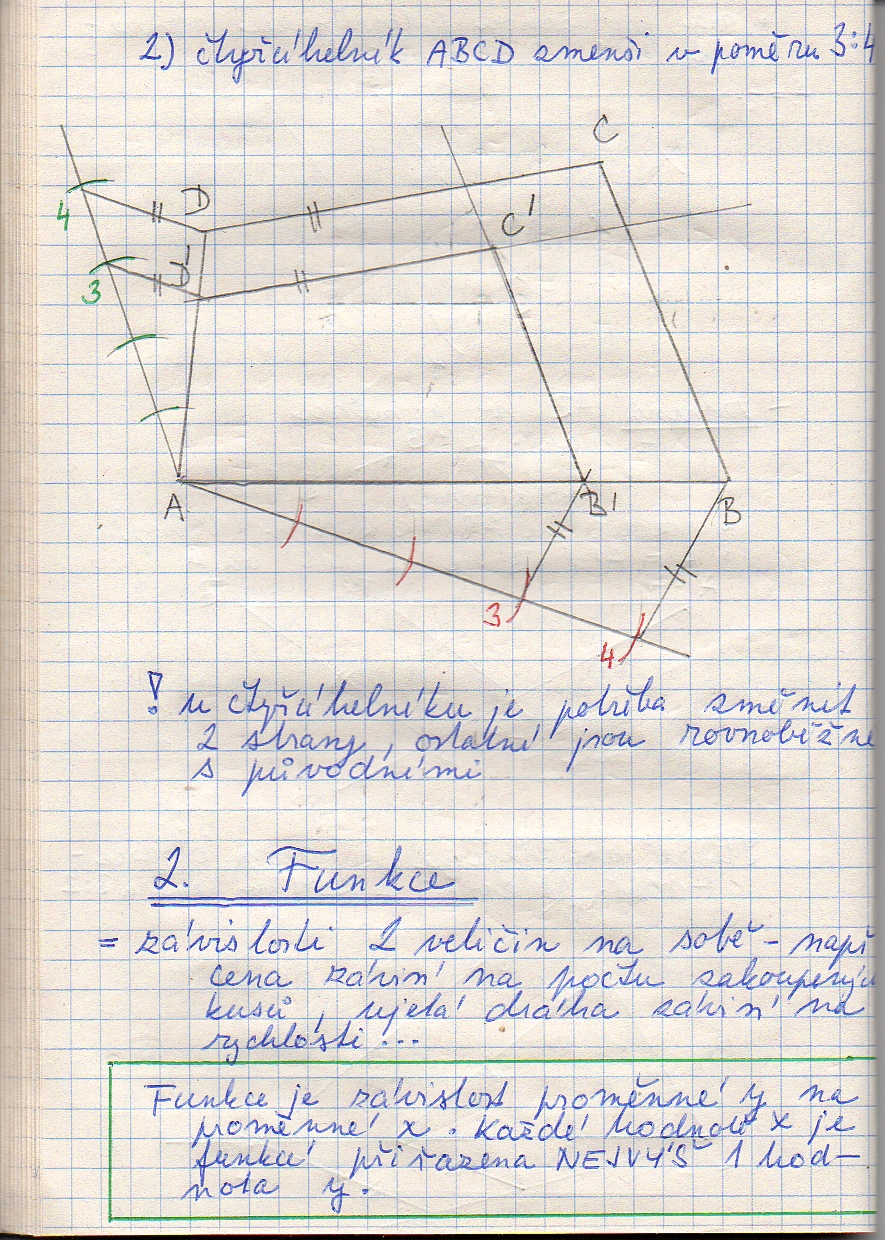 2) čtyřúhelník ABCD zmenši v poměru 3:4
C
D
4
C'
D'
3
A
B'
B
3
4
! u čtyřúhelníku je potřeba změnit
2 strany, ostatní jsou rovnoběžné
s původními
2. Funkce
= závislosti 2 veličin na sobě - např
cena závisí na počtu zakoupených
kusů, ujetá dráha závisí na
rychlosti...
Funkce je závislost proměnné y na
proměnné x. Každé hodnotě x je
funkcí přiřazena NEJVÝŠ 1 hod-
nota y.